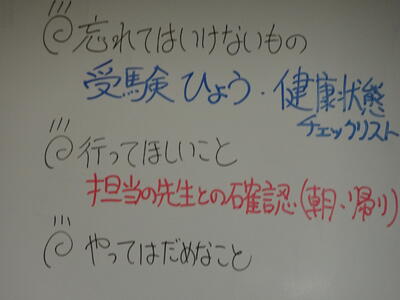 忘れてはいけないもの
受験ひょう・健康状態
チェックリスト
行ってほしいこと
担当の先生との確認(朝・帰り)
やってはだめなこと